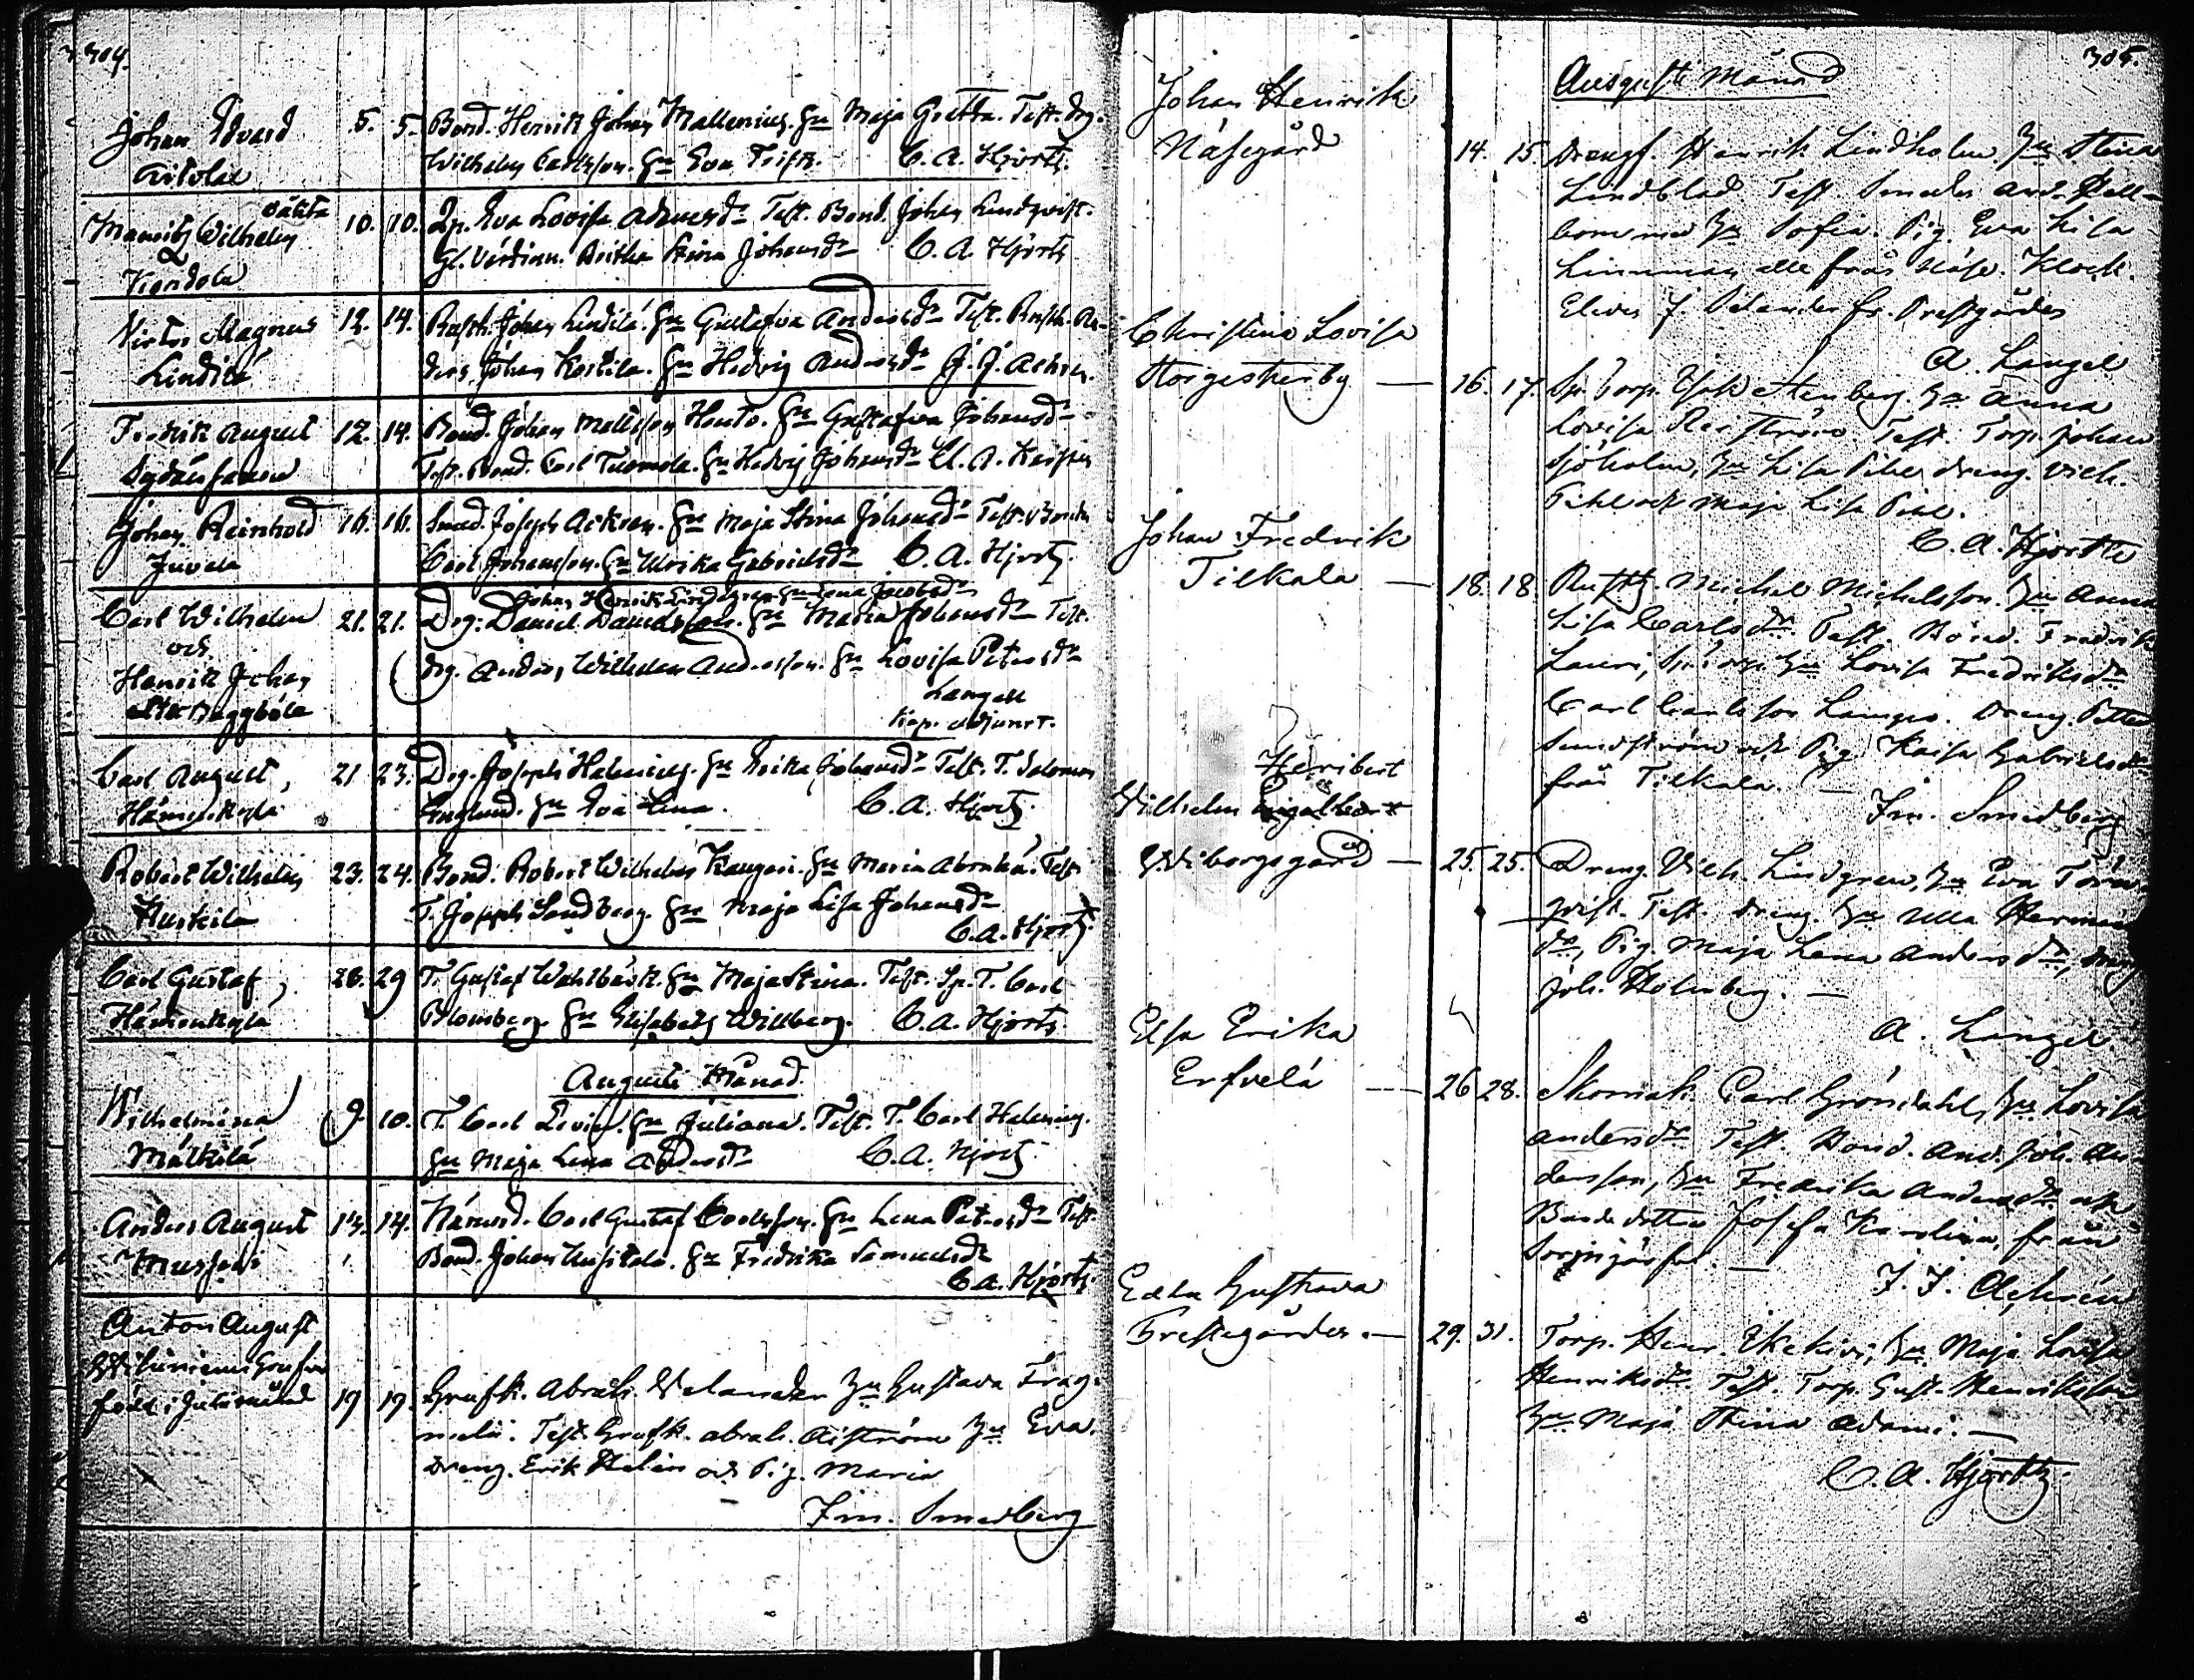 304.
Johan Edvard
Aitolax
5. 5. Bond. Henrik Johan Mallenius. Hu Maja Gretta. Test. Drg.
Wilhelm Carlsson. Hu Eva Frisk. C. A. Hjorts.
oäkta
Mauritz Wilhelm
Kordola
10. 10. Qp. Eva Lovisa Adamsdr Test. Bond. Johan Lindqvist.
Gl. Värdinn. Britha Stina Johansdr C. A. Hjorts
Victor Magnus
Lindilä
12. 14. Rusth. Johan Lindilä. Hu Gustafva Andersdr Test. Rusth. An-
ders Johan Koskila. Hu Hedvig Andersdr J. J. Achrén.
Fredrik August
12. 14. Bond. Johan Mattsson Honto. Hu Gustafva Johansdr
Test. Bond. Carl Tuomola. Hu Hedvig Johansdr
Johan Reinhold
Juvela
16. 16. Smed. Joseph Ackren. Hu Maja Stina Johansdr Test. Bond.
Carl Johansson. Hu Ulrika Gabrielsdr C. A. Hjorts.
Carl Wilhelm
och
Henrik Johan
Baggböle
Johan Henrik Lindgren Hu Lena Jacobsdr
21. 21. Drg. Daniel Danielsson. Hu Maria Johansdr Test.
Drg. Anders Wilhelm Andersson. Hu Lovisa Petersdr
Langell
Kap. adjunct.
Carl August,
Hämenkylä
21 23. Drg. Joseph Halenius. Hu Erika Johansdr Test. T. Salomon
Englund. Hu Eva Lena. C. A. Hjorts.
Robert Wilhelm
Kuskila
23. 24. Bond. Robert Wilhelm Kangari. Hu Maria Abrahá. Test.
T. Joseph Sandberg. Hu Maja Lisa Johansdr
C. A. Hjorts.
Carl Gustaf,
Hämenkylä
28. 29 T. Gustaf Wahlbäck. Hu Maja Stina. Test. Sp. T. Carl
Blomberg. Hu Elisabeth Willberg. C. A. Hjorts.
Augusti Månad.
Wilhelmina
Mälkilä
9. 10. T. Carl Levin. Hu Juliana. Test. T. Carl Halenius.
Hu Maja Lena Andersdr C. A. Hjorts.
Anders August
Mussari
13. 14. Närusd. Carl Gustaf Carlsson. Hu Lena Petersdr Test.
Bond. Johan Uusitalo. Hu Fredrika Samuelsdr
C. A. Hjorts.
Anton August
född i Juli månad
19 19. Grufk. Abrah. Velander Hu Gustava Frag-
melii. Test. Grufk. Abrah. Aiström Hu Eva.
Dreng. Erik Helin och Pig. Maria
Im. Smedberg
305.
Augusti Månad
Johan Henrik
Näsegård
14. 15. Drengf. Henrik Lindholm Hu Stina
Lindblad Test. Smeden And. Hell-
bom med Hu Sofia. Pig. Eva Lisa
Linnman alle från Näse. Klock.
Eleven J. Delander fr. Prestgården
A. Langel
Christina Lovisa
Storgesterby
16. 17. Sp. Torp. Isak Stenberg. Hu Anna
Lovisa Reiström. Test. Torp. Johan
Sjöholm, Hu Lisa Pihl dreng. Vilh.
Pihl och Maja Lisa Pihl.
C. A. Hjorth
Johan Fredrik
Tilkala
18. 18. Rusth. Michel Michelsson. Hu Anna
Lisa Carlsdr. Test. Bond. Fredrik
Lauri, Sp. Torp. Hu Lovisa Fredriksdr
Carl Carlsson Lampo. Dreng. Petter
Sundström och Pig. Kaisa Gabrielsdr
från Tilkala.
Im. Smedberg
Heribert
Vilhelm Engelbert
Wiborgsgård
25. 25. Dreng. Vilh. Lindgren, Hu Eva Törn-
qvist. Test. dreng. Hu Ulla Herman
dr, Pig. Maja Lena Andersdr, dreng
Joh. Holmberg.
A. Langel.
Elsa Erika
Erfvelä
26 28. Skomak. Carl Gröndahl, Hu Lovisa
Andersdr Test. Bond. And. Joh. An-
dersson, Hu Fredrika Andersdr och
Bondedotter Josefa Karolina från
Sorpijärfvi.
J. J. Achrén
Edla Gustava
Prestegården.
29. 31. Torp. Henr. Ikekivi, Hu Maja Lovisa
Henriksdr. Test. Torp. Gust. Henriksson
Hu Maja Stina Adami.
C. A. Hjorth.